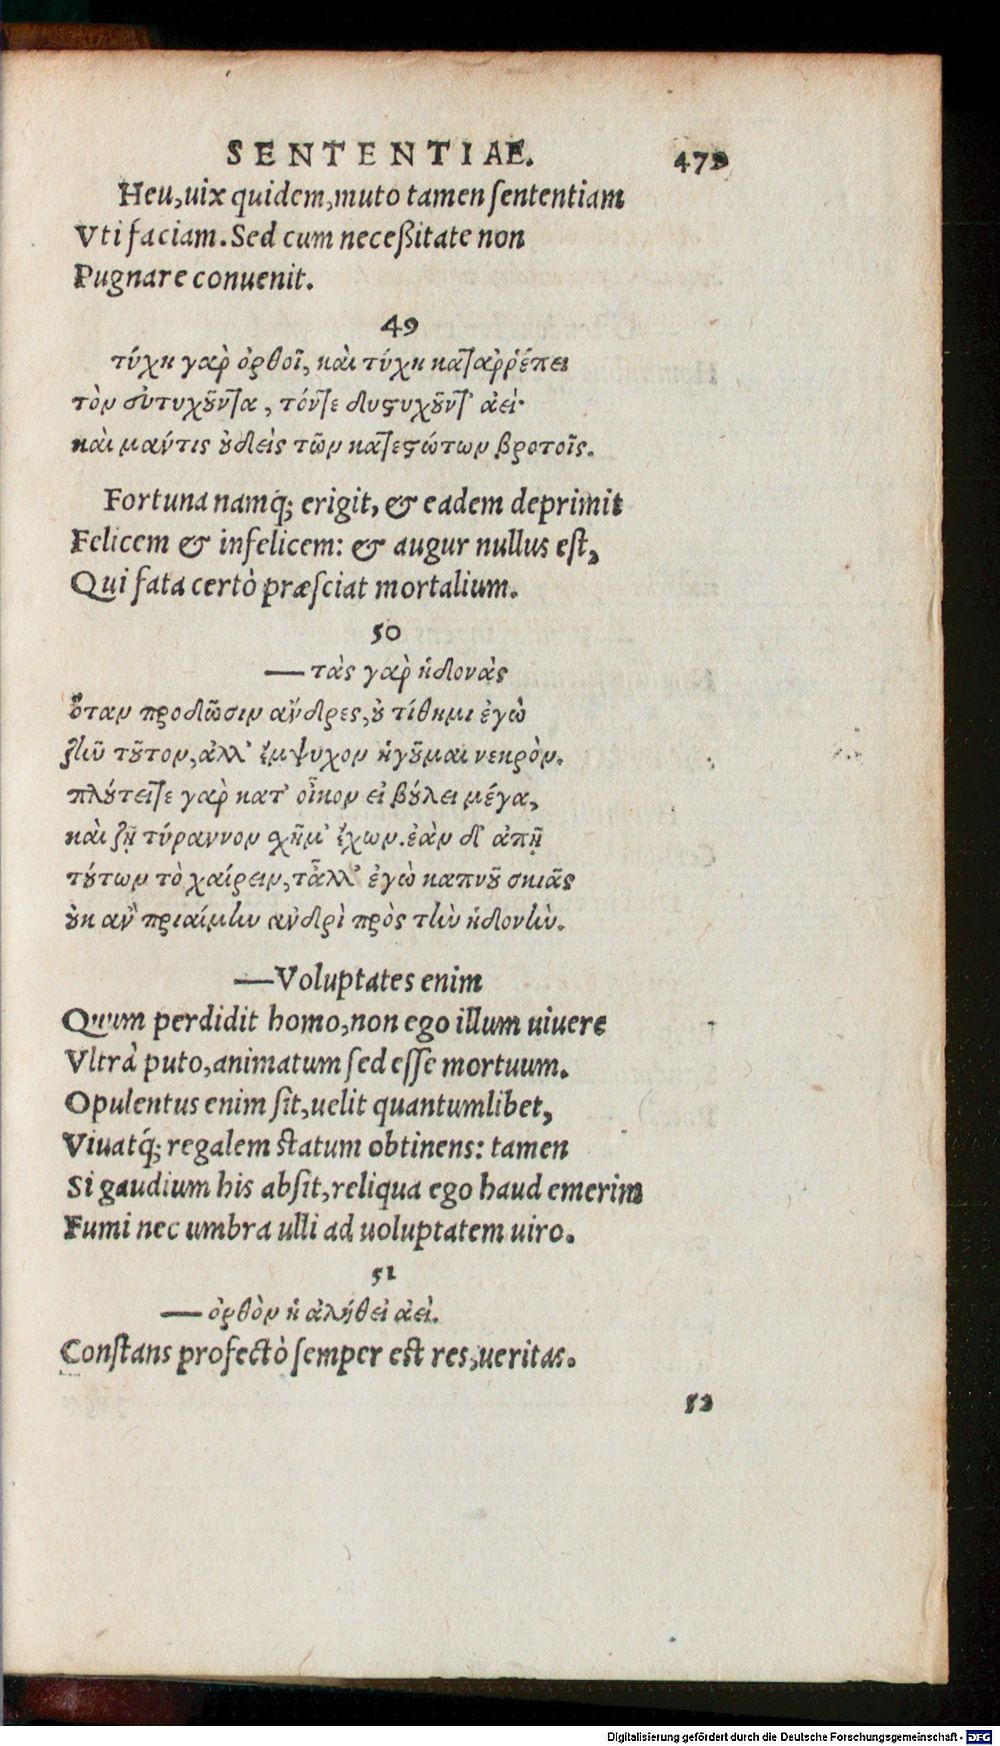 SENTENTIAE. 471
Heu, uix quidem, muto tamen ſententiam
Vti faciam. Sed cum neceßitate non
Pugnare conuenit.
49
τύχη γὰρ ὀρθοῖ, καὶ τύχη καταῤῥέπει
τὸν εὐτυχοῦντα, τόντε δυςυχοῦντ' ἀεί·
καὶ μάντις οὐδεὶς τῶν κατεςώτων βροτοῖς.
Fortuna namq; erigit, & eadem deprimit
Felicem & infelicem: & augur nullus eſt,
Qui fata certò præſciat mortalium.
50
— τὰς γὰρ ἡδονὰς
ὅταν προδῶσιν ἄνδρες, οὐ τίθημι ἐγὼ
ζῆν τοῦτον, ἀλλ' ἔμψυχον ἡγοῦμαι νεκρὸν.
πλούτειτε γὰρ κατ' οἶκον εἰ βούλει μέγα,
καὶ ζῇ τύραννον χῆμ' ἔχων. ἐὰν δ' ἀπῇ
τούτων τὸ χαίρειν, τἆλλ' ἐγὼ καπνοῦ σκιᾶς
οὐκ ἂν πριαίμην ἀνδρὶ πρὸς τὴν ἡδονὴν.
—Voluptates enim
Quum perdidit homo, non ego illum uiuere
Vltrà puto, animatum ſed eſſe mortuum.
Opulentus enim ſit, uelit quantumlibet,
Viuatq́; regalem ſtatum obtinens: tamen
Si gaudium his abſit, reliqua ego haud emerim
Fumi nec umbra ulli ad uoluptatem uiro.
51
— ὀρθὸν ἡ ἀλήθει ἀεὶ.
Conſtans profectò ſemper eſt res, ueritas.
52
Digitalisierung gefördert durch die Deutsche Forschungsgemeinschaft - DFG